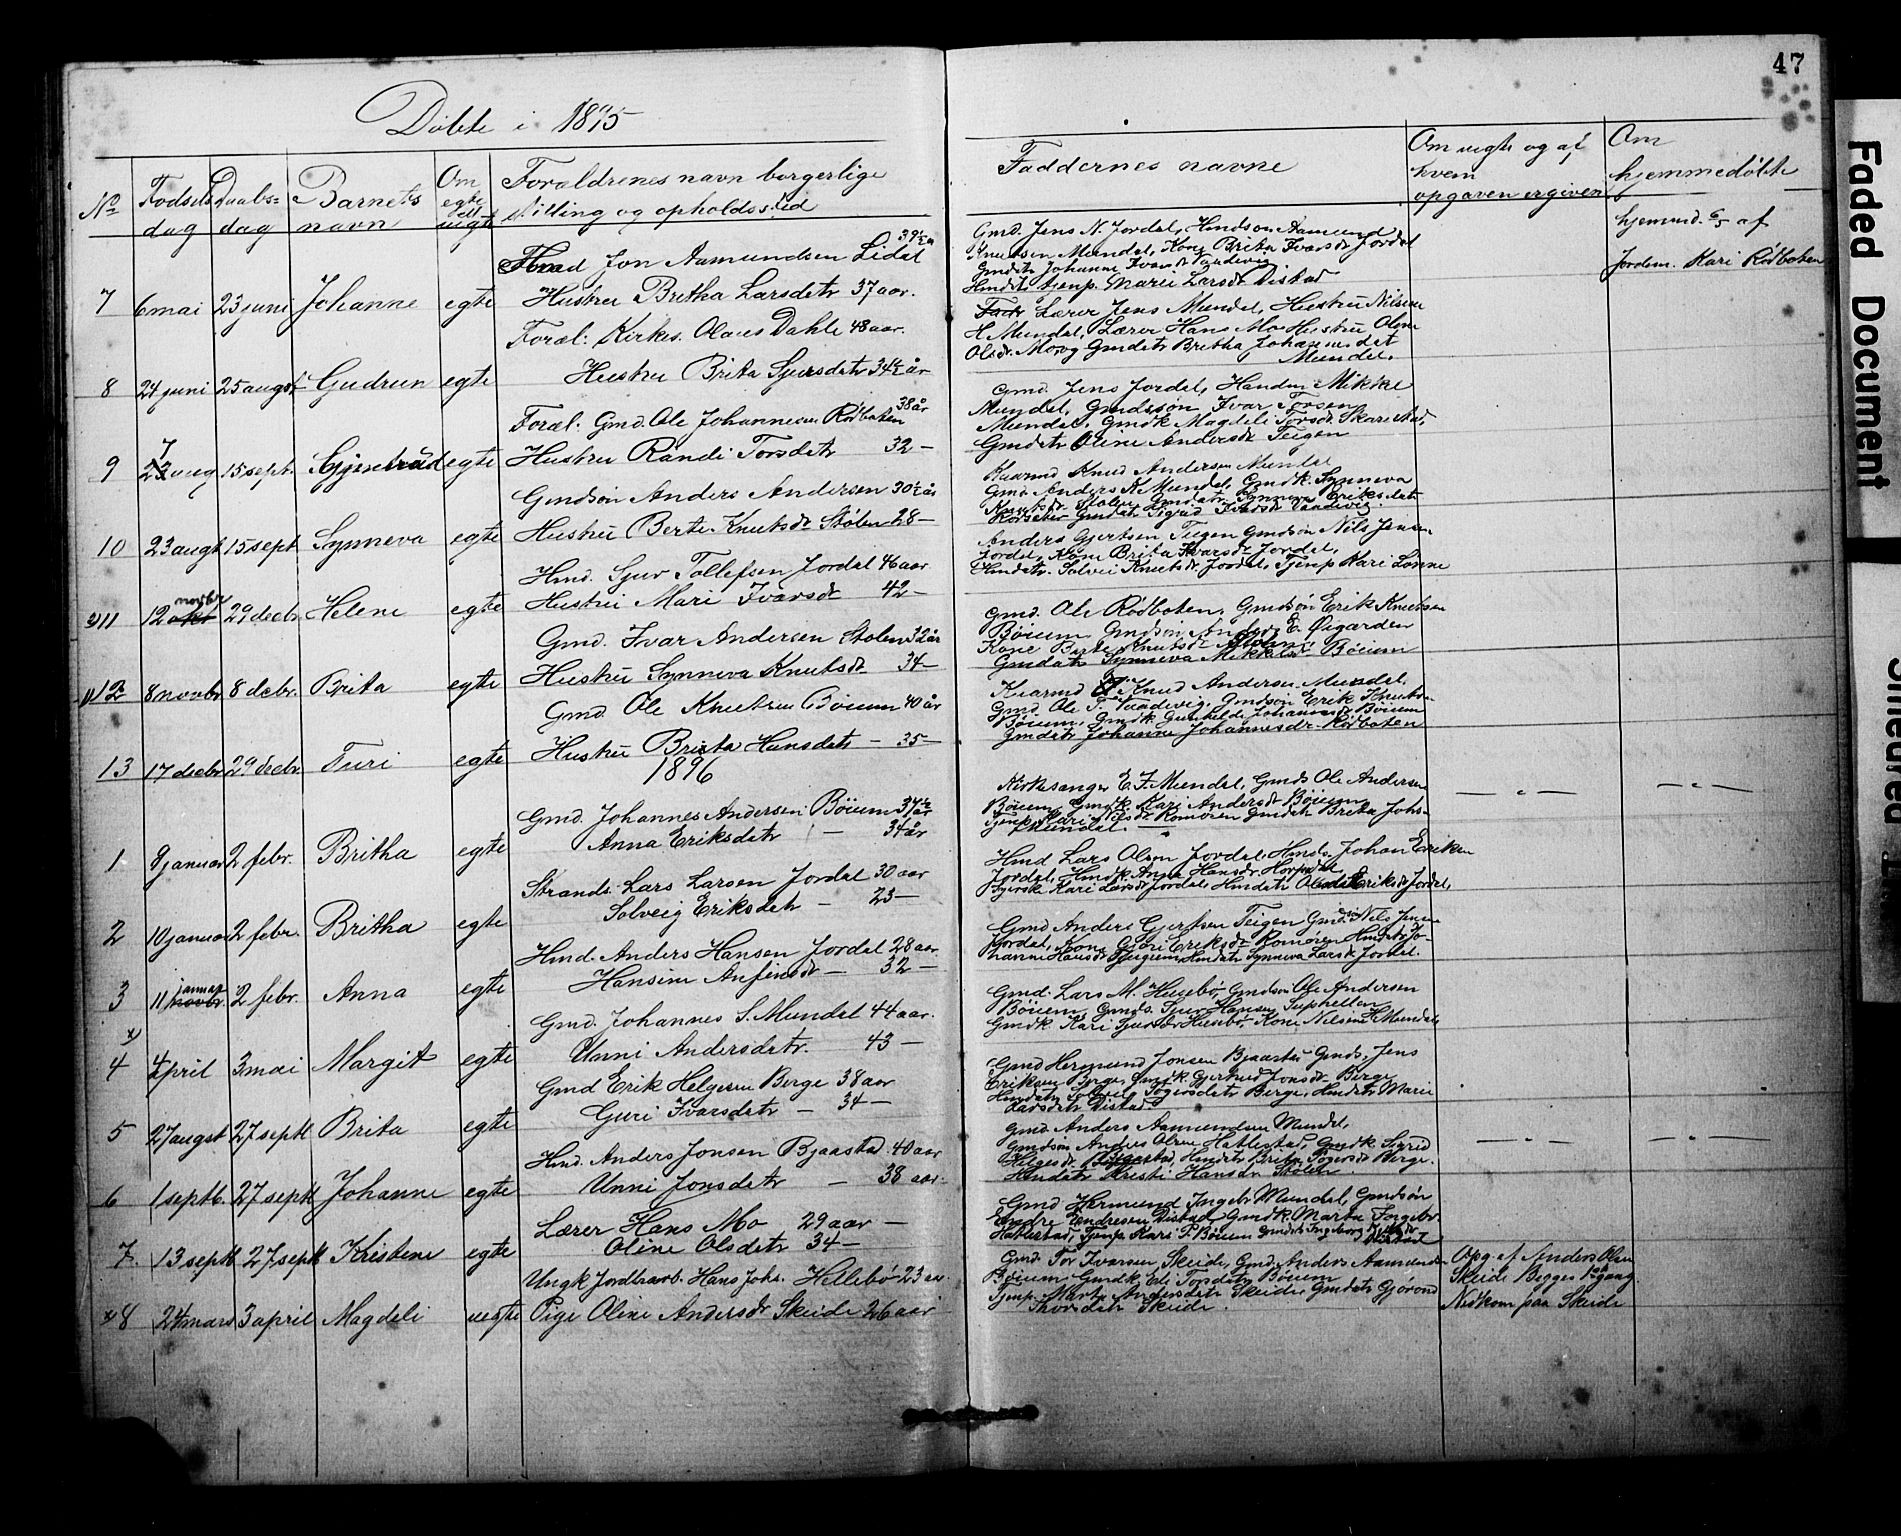 47
Døbte i 1895
No
Fødsels dag
Daabs= dag
Barnets navn
Om egte ell. uegte
Forældrenes navn borgerlige
stilling og opholdssted
Faddernes navne
Om uegte og af
hvem
opgaven ergiven
Om
hjemmedøbte
hjemmed. 6/5 af
Jordem. Kari Rødboten
7 6 mai 23 juni Johanne egte
Jon Aamundsen Lidal 39½ år
Hustru Britha Larsdatr 37 aar.
Gmd. Jens N. Jordal, Hmdsøn Aamund
Knutsen Mundal, Kone Brita Ivarsdr Jordal
Gmdatr Johanne Ivarsdr Vaadevig
Hmdatr tjenp. Marie Larsdr Distad
8 24 juni 25 augst Gudrun egte
Foræl: Kirkes. Olaus Dahle 48 aar.
Hustru Brita Sjursdatr 34½ år
Lærer Jens Mundal, Hustru Nilsine
H. Mundal, Lærer Hans Mo Hustru Oline
Olsdr. Mo og Gmdatr Britha Johannesdat
Mundal.
9 23 aug 15 sept. Gjertrud egte
7
Foræl: Gmd. Ole Johannesen Rødboten 38 år
Hustru Randi Torsdatr 32 —
Gmd. Jens Jordal, Handm. Mikkel
Mundal, Gmdssøn Ivar Torsen
Mundal, Gmdk Magdeli Torsdr Skarestad,
Gmdatr Oline Andersdr Teigen
10 23 augt 15 sept Synneva egte
Gmdsøn Anders Andersen 30½ år
Hustru Berte Knutsdr Stølen 28 —
Kaarmd Knud Andersen Mundal
Gmd. Anders K Mundal, Gmdk. Synneva
Knutsdr Stølen, Gmdatr Synneva Eriksdatr
Rødseter Gmdatr Sigrid Ivarsdr Vaadevig.
11 12 okt novbr 29 decbr Helene egte
Hmd. Sjur Tollefsen Jordal 46 aar
Hustru Mari Ivarsdr 42 —
Anders Gjertsen Teigen Gmdsøn Nils Jensen
Jordal, Kone Brita Ivarsdr Jordal,
Hmdatr. Solvei Knutsdr Jordal, Tjenp Kari Lønne
12 8 novbr 8 decbr. Brita egte
Gmd. Ivar Andersen Stølen 32 år
Hustru Synneva Knutsdr 34 —
Gmd. Ole Rødboten, Gmdsøn Erik Knutsen
Bøium Gmdsøn Anders E. Øigarden
Kone Berte Knutsdr Stølen
Gmdatr Synneva Mikkelsdr Bøium
13 17 decbr 29 decbr. Turi egte
Gmd. Ole Knutsen Bøium 40 år
Hustru Brita Hansdatr — 35 —
Kaarmd Knud Andersen Mundal,
Gmd Ole T. Vaadevig, Gmdsøn Erik Knutsen
Bøium, Gmdk. Gunhilde Johannesdr Bøium
Gmdatr Johanne Johannesdr Rødboten
1896
1 9 januar 2 febr. Britha egte
Gmd. Johannes Andersen Bøium 37½ år
Anna Eriksdatr — 34 år
Kirkesanger E. J. Mundal, Gmds Ole Andersen
Bøium Gmdk Kari Andersdr Bøium
Tjenp. Kari Nilsdr Romøren Gmdatr Britha Johs
Mundal.
2 10 januar 2 febr. Britha egte
Strands. Lars Larsen Jordal 30 aar
Solveig Eriksdatr — 23 —
Hmd Lars Olsen Jordal, Hmds. Johan Eriksen
Jordal, Hmdk. Anna Hansdr Horpedal,
Kari Larsdr Jordal, Hmdatr Eriksdr Jordal,
3 11 novbr. januar 2 febr. Anna egte
Hmd. Anders Hansen Jordal 28 aar
Hansine Anfinsdr — 32 —
Gmd Anders Gjertsen Teigen Gmdsøn Nils Jensen
Jordal, Kone Gjøri Eriksdr Romøren Hmdatr Jo-
hanne Hansdr Hmdatr Synneva Larsdr Jordal.
4 4 april 3 mai Margit egte
Gmd. Johannes S. Mundal 44 aar.
Unni Andersdatr. 43 —
Gmd. Lars M. Husebø, Gmdsøn Ole Andersen
Bøium, Gmds. Sjur Hansen Suphellen
Gmdk Kari Sjursdr Husebø, Kone Nilsine H. Mundal,
5 27 augst 27 septr Brita egte
Gmd Erik Helgesen Berge 38 aar
Guri Ivarsdatr — 34 —
Gmd Hermund Jonsen Bjaastad Gmds. Jens
Eriksen Berge, Gmdk. Gjertrud Jonsdr Berge
Hmdatr Solveig Berge, Hmdatr Marie
Larsdatr Distad.
6 1 septb. 27 septr Johanne egte
Hmd. Anders Jonsen Bjaastad 40 aar
Unni Jonsdatr — 38 aar.
Gmd Anders Aamundsen Mundal,
Gmdsøn Anders Olsen Hatlestad, Gmdk Sigrid
Helgesdr Bjaastad Hmdatr Brita Berge.
Hmdatr Kristi Hansdr Stølen
7 13 septb 27 septr Kristene egte
Lærer Hans Mo 29 aar —
Oline Olsdatr 34 —
Gmd Hermund Ingebr Mundal, Gmdsøn
Endre Endresen Distad Gmdk. Marta Ingebr.
Hatlestad, Tjenp Kari P. Bøium Gmdatr Ingeborg
Distad
8 24 mars 3 april Magdeli uegte
Ungk Jordbrarb. Hans Johs. Hellebø 23 aar.
Pige Oline Andersdr Skeide 26 aar
Gmd. Tor Ivarsen Skeide, Gmd. Anders Aamundsen
Bøium Gmdk Eli Torsdatr Bøium
Tjenp. Marta Andersdatr Skeide, Gmdatr Gjørond
Thorsdatr Skeide.
Opg. af Anders Olsen
Skeide Begges 1ste gang
Nedkom paa Skeide
Faded Document